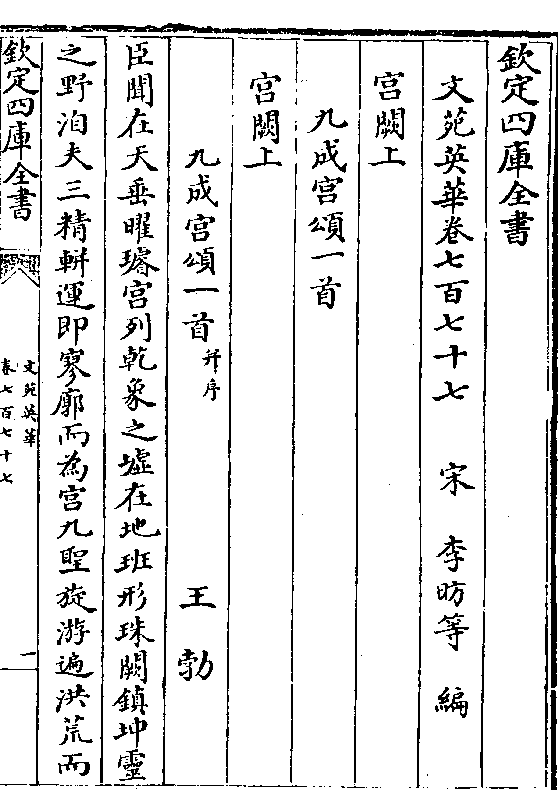 欽定四庫全書
文苑英華卷七百七十七　宋　李昉等　編
宫闕上
九成宫頌一首
宫闕上
九成宫頌一首并序　王勃
臣聞在天垂曜璿宫列乾象之墟在地班形珠闕鎮坤靈
之野洎夫三精輧運即寥廓而為宫九聖旋游遍洪荒而
欽定四庫全書
文苑英華
卷七百七十七
一